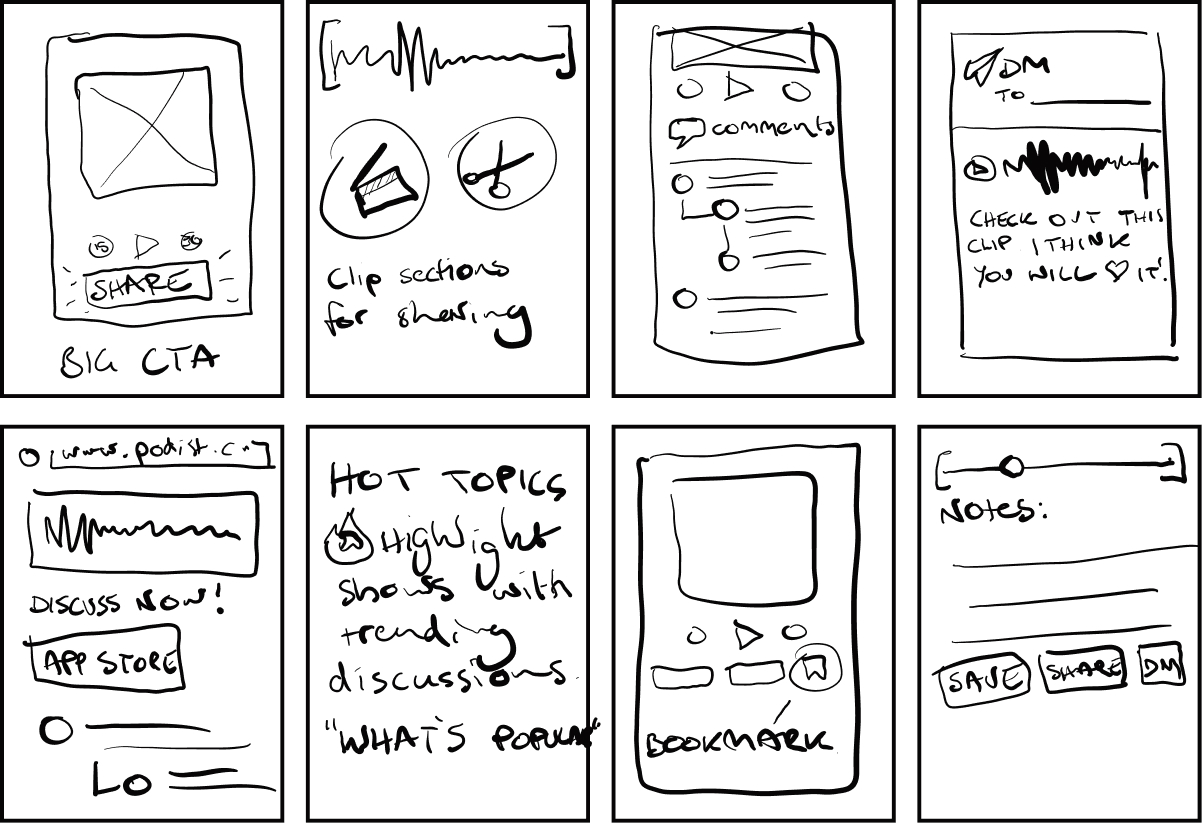 15
30
SHARE
BIG CTA
Clip sections
for sharing
comments
DM
TO
CHECK OUT THIS
CLIP I THINK
YOU WILL ♡ IT!
www.podist.c
DISCUSS NOW!
APP STORE
HOT TOPICS
Highlight
shows with
trending
discussions.
"WHAT'S POPULAR"
BOOKMARK
Notes:
SAVE
SHARE
DM